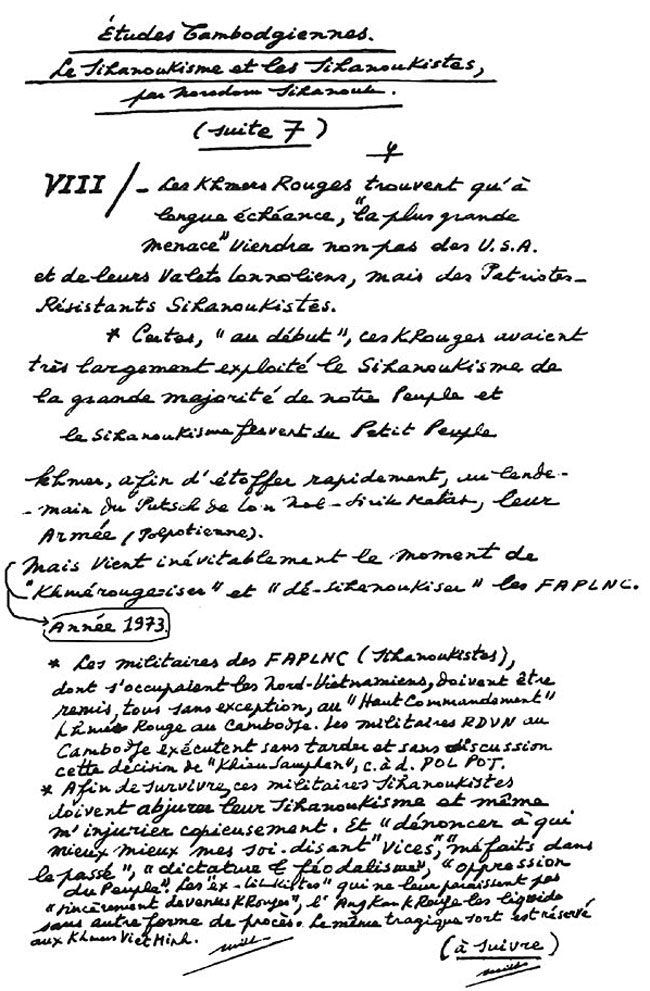 Études Cambodgiennes.
Le Sihanoukisme et les Sihanoukistes,
par Norodom Sihanouk.
(suite 7)
VIII/- Les Khmers Rouges trouvent qu'à
longue échéance, "la plus grande
menace" viendra non pas des U.S.A.
et de leurs valets lonnoliens, mais des Patriotes-
Résistants Sihanoukistes.
* Certes, "au début", ces KRouges avaient
très largement exploité le Sihanoukisme de
la grande majorité de notre Peuple et
le Sihanoukisme fervent du Petit Peuple
khmer, afin d'étoffer rapidement, au lende-
-main du Putsch de Lon Nol-Sirik Matak, leur
Armée (Polpotienne).
Mais vient inévitablement le moment de
"Khmérougeiser" et "dé-Sihanoukiser" les FAPLNC.
Année 1973.
* Les militaires des FAPLNC (Sihanoukistes),
dont s'occupaient les Nord-Vietnamiens, doivent être
remis, tous sans exception, au "Haut Commandement"
khmer Rouge au Cambodje. Les militaires RDVN au
Cambodje exécutent sans tarder et sans discussion
cette décision de "Khieu Samphan", c.à d. POL POT.
* Afin de survivre, ces militaires Sihanoukistes
doivent abjurer leur Sihanoukisme et même
m'injurier copieusement. Et "dénoncer à qui
mieux mieux mes soi-disant "vices", "méfaits dans
le passé", "dictature & féodalisme", "oppression
du Peuple". Les "ex-Sihkistes" qui ne leur paraissent pas
"sincèrement devenus KRouges", l'Angkar KRouge les liquide
sans autre forme de procès. Le même tragique sort est réservé
aux Khmers Viet Minh.
(à suivre)